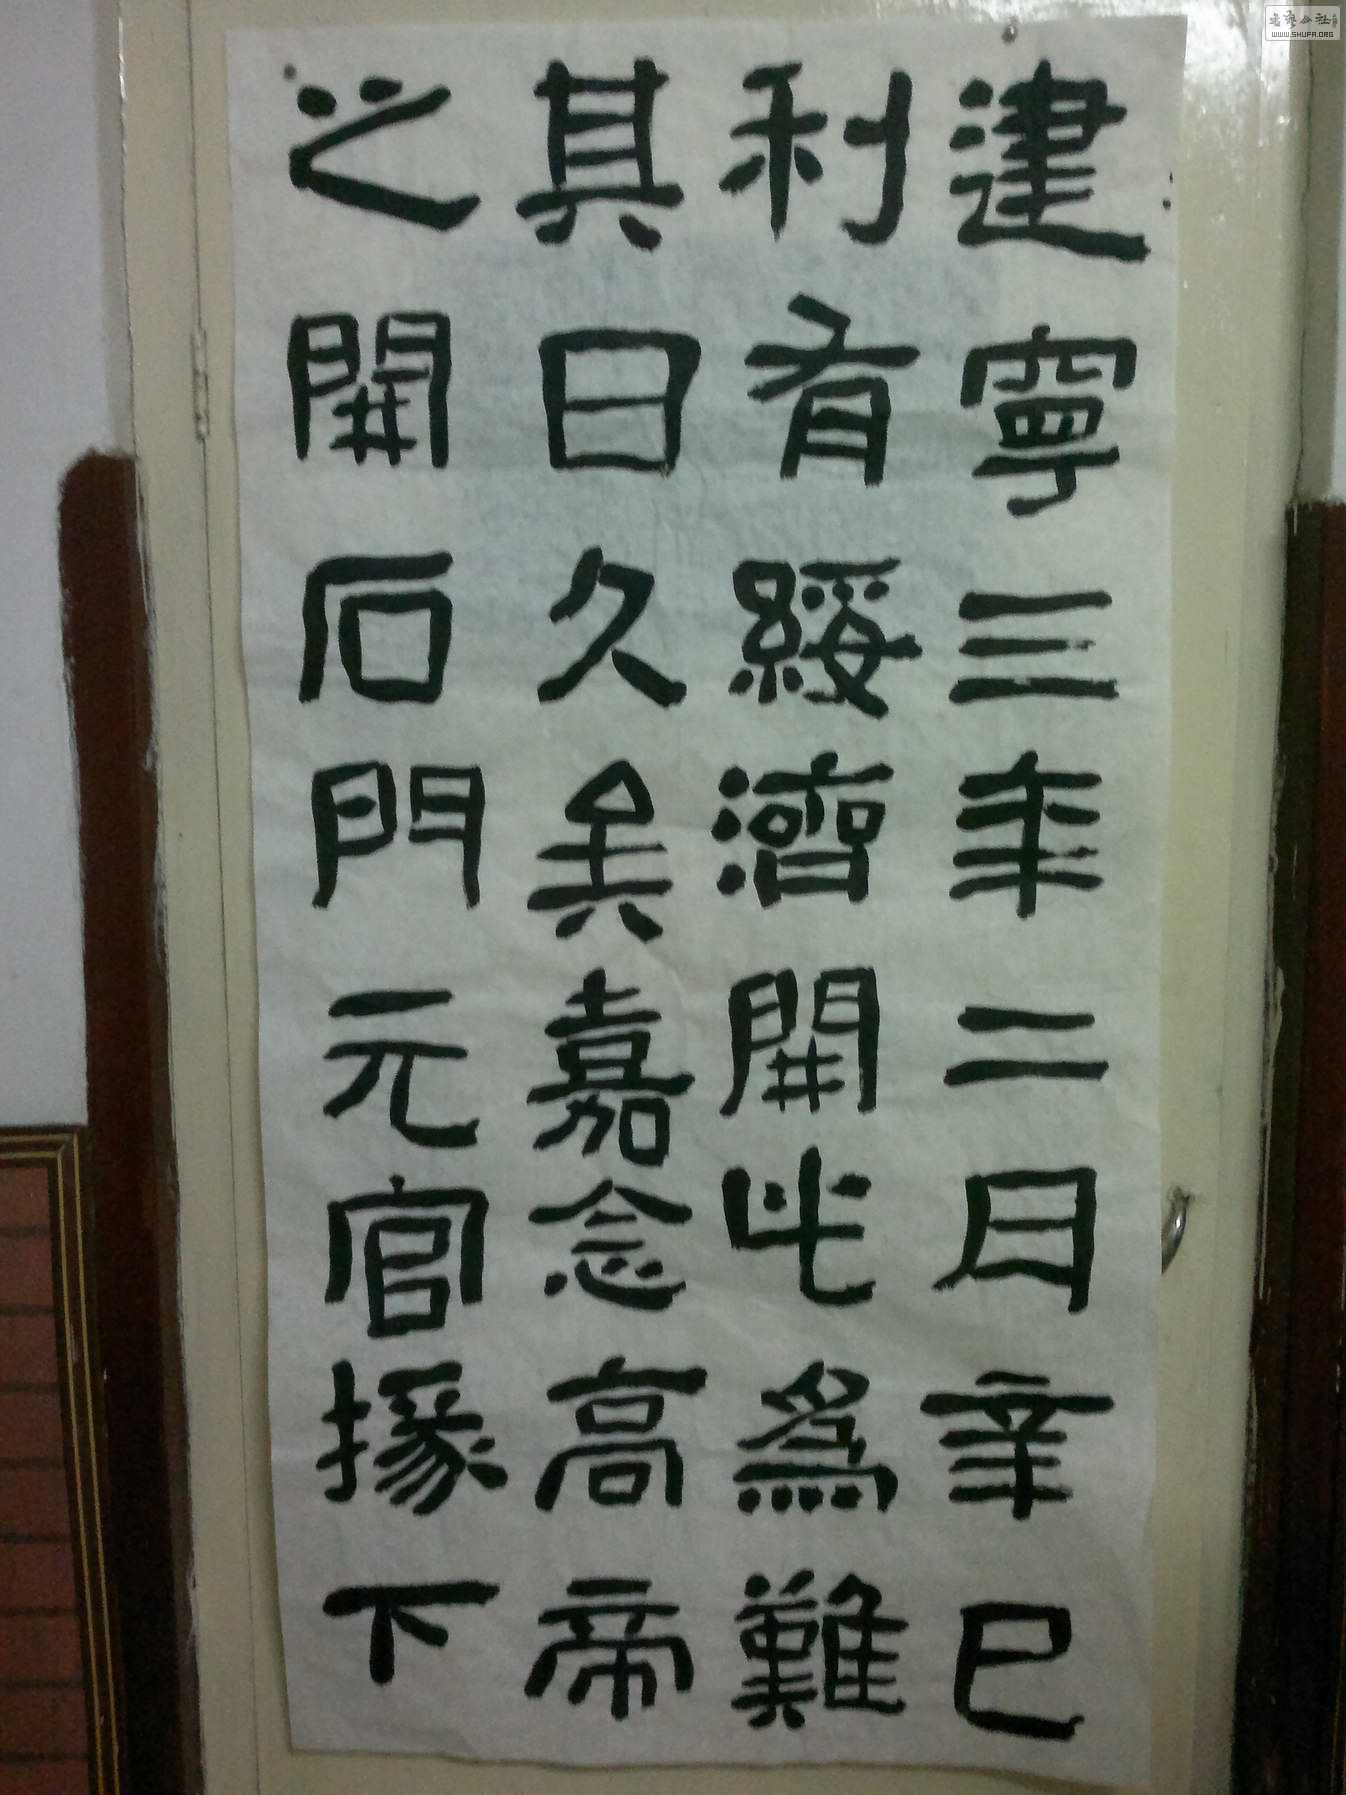 建寧三年二月辛巳
利有綏濟開此為難
其日久矣嘉念高帝
之開石門元官掾下
WWW.SHUFA.ORG